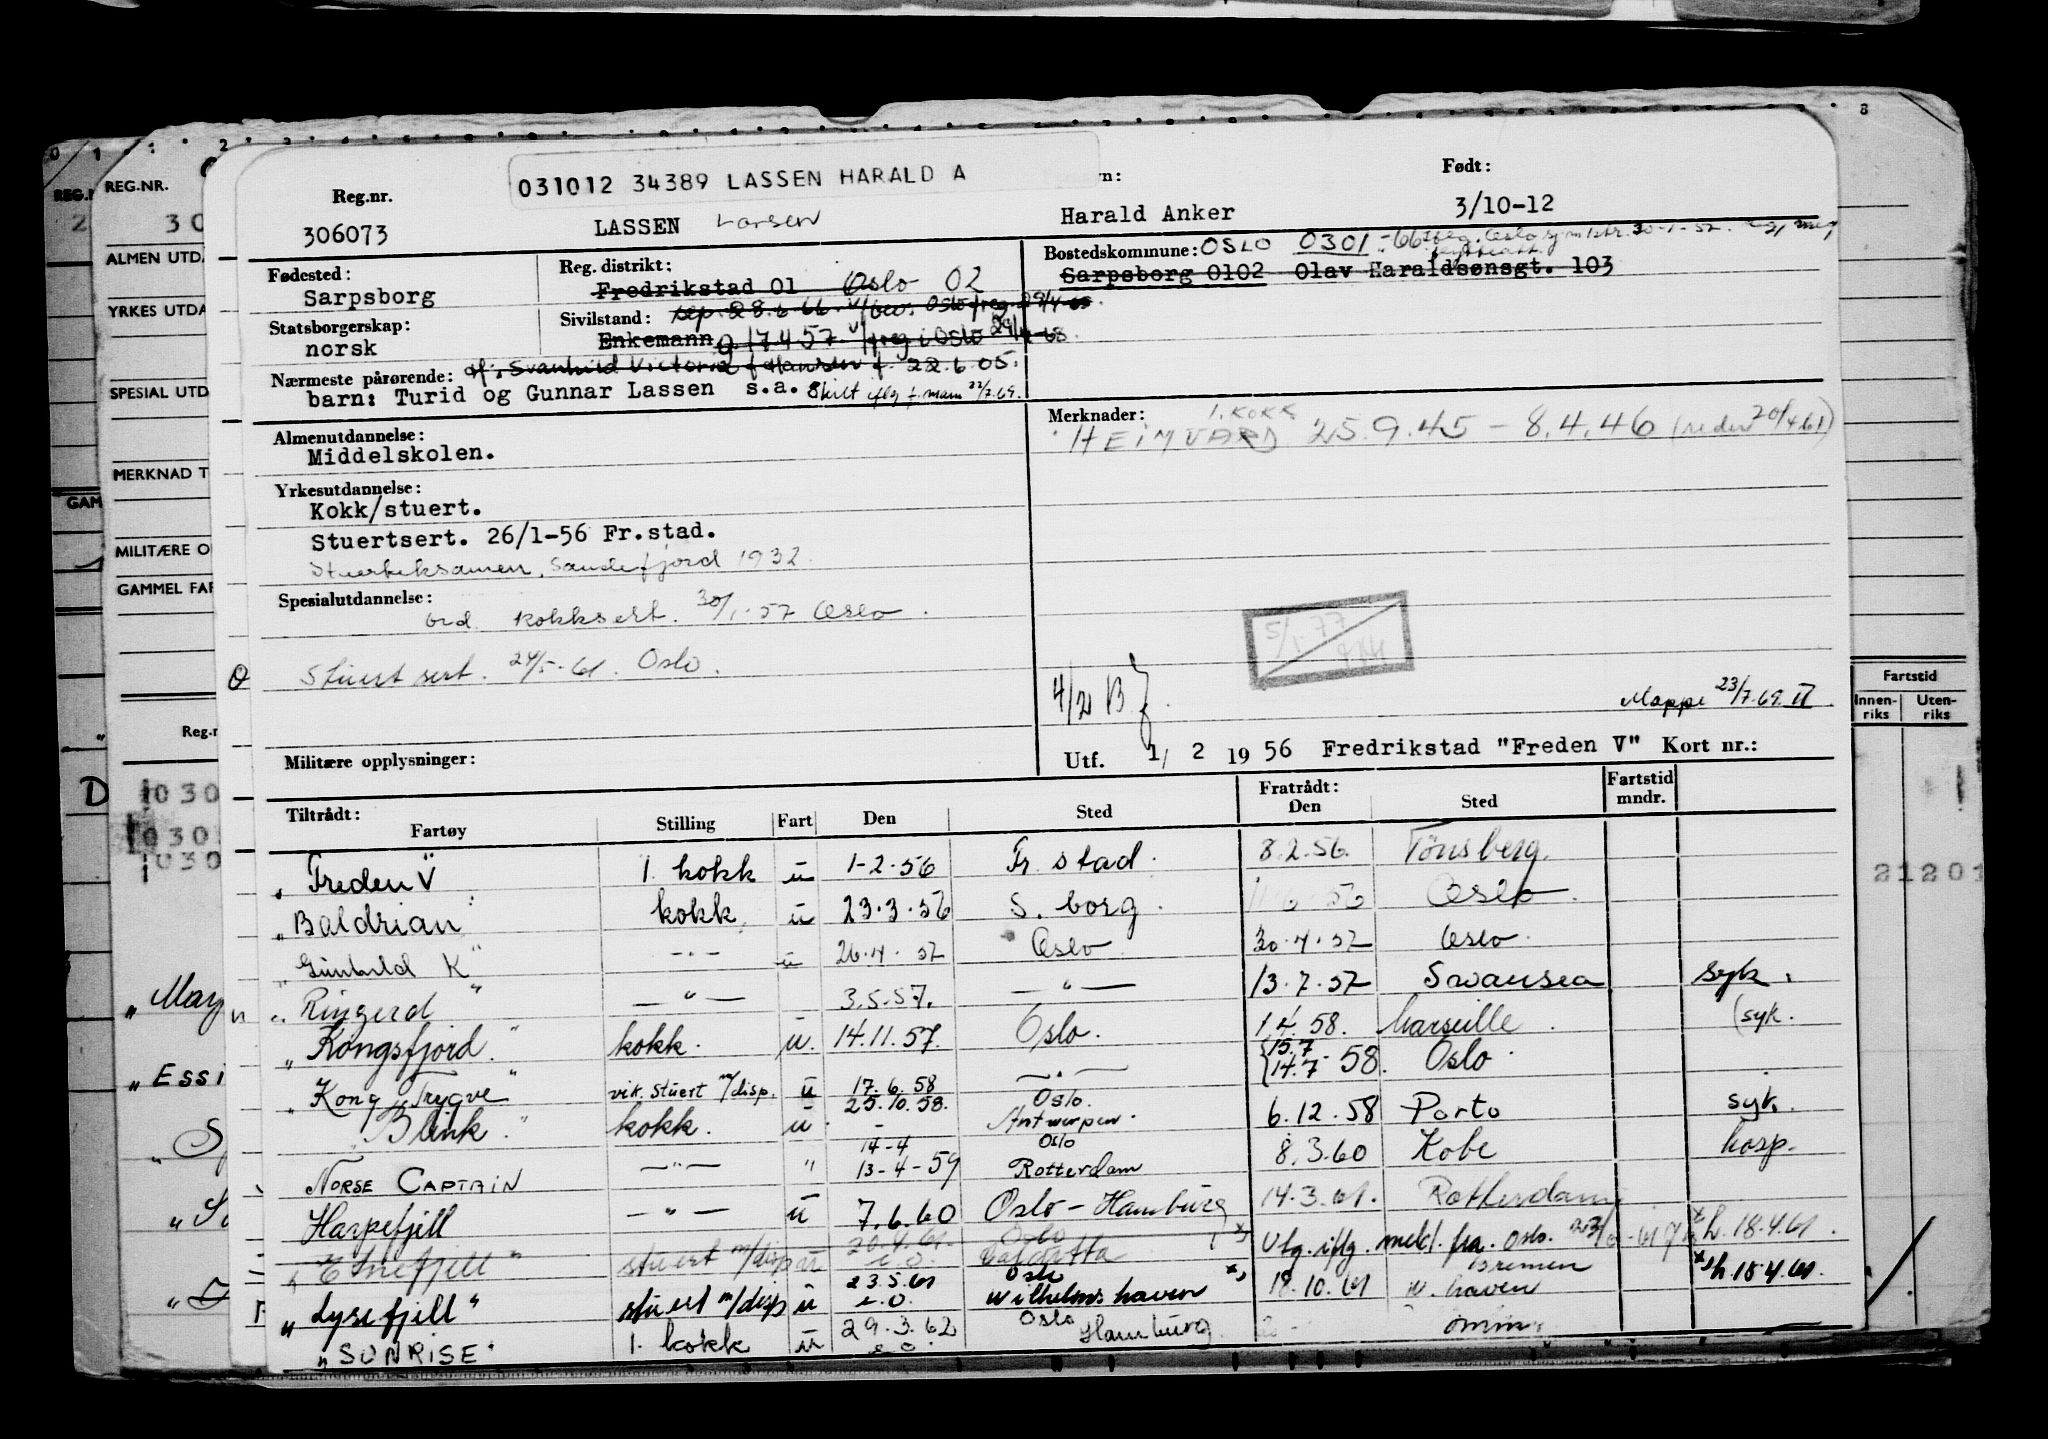 031012 34389 LASSEN HARALD A
Reg.nr. Født:
306073 LASSEN Larsen Harald Anker 3/10-12
Fødested: Reg. distrikt: Bostedskommune: OSLO 0301
Sarpsborg Fredrikstad 01 Oslo 02 Sarpsborg 0102 Olav Haraldsønsgt. 103
Statsborgerskap: Sivilstand:
norsk Enkemann g. 17.4.57 freg i Oslo
Nærmeste pårørende: Svanhild Victoria f. Hansen f. 22.6.05.
barn: Turid og Gunnar Lassen s.a. Skilt iflg f. mann 22/7.69.
Almenutdannelse: Merknader: 1. KOKK
Middelskolen. HEIMVARD 25.9.45 - 8.4.46 (rederi 20/4.61)
Yrkesutdannelse:
Kokk/stuert.
Stuertsert. 26/1-56 Fr.stad.
Stuerteksamen, Sandefjord 1932
Spesialutdannelse:
ord. kokksert. 30/1-57 Oslo.
5/1 77
Stuert sert. 24/5-61. Oslo.
4/21 B
Mappe 23/7.69.
Militære opplysninger: Utf. 1/2 1956 Fredrikstad "Freden V" Kort nr.:
Tiltrådt: Fratrådt: Fartstid
Fartøy Stilling Fart Den Sted Den Sted mndr.
"Freden V" 1. kokk u 1-2-56 Fr. stad. 8.2.56. Tönsberg.
"Baldrian" kokk u 23.3.56 S. borg. 56 Oslo.
"Gunhild K" -"- u 26.4.57 Oslo 30.4.57 Oslo.
"Ringerd" -"- 3.5.57. -"- 13.7.57 Swansea syk.
"Kongsfjord" kokk. u. 14.11.57. Oslo. 1.4.58. Marseille (syk.
15.7
"Kong Trygve" vik. stuert m/disp. u 17.6.58 -"- 14.7 58. Oslo.
"Blink" kokk. u. 25.10.58. Oslo. Antwerpen. 6.12.58 Porto syk.
14-4 Oslo
NORSE CAPTAIN -"- " 13-4-59 Rotterdam 8.3.60 Kobe hosp.
Harpefjell -"- u 7.6.60 Oslo - Hamburg 14.3.61. Rotterdam
stuert m/disp u 20.4.61. Oslo Utg. iflg. meld. fra. Oslo. h. 18.4.61.
Bremen
"Lysefjell" stuert m/disp u 23.5.61 Oslo Wilhelmshaven 18.10.61 W. haven h. 18.4.61.
"SUNRISE" 1. kokk u 29.3.62 Oslo Hamburg
REG.NR.
30
ALMEN UTD
YRKES UTDA
SPESIAL UTD
MERKNAD T
MILITÆRE O
GAMMEL FAR
Reg.n
030
030
030
"May
"Essi
Fartstid
Innenriks Utenriks
21201